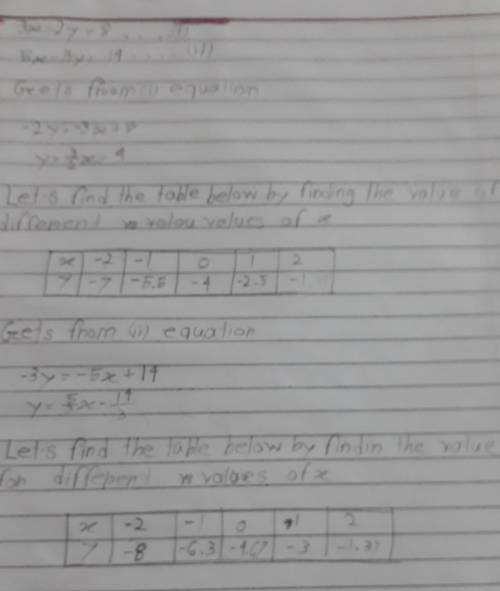 3x-2y=8 ....(i)
5x-3y=14 ....(ii)
Gets from (i) equation
-2y=-3x+8
y=3/2x-4
Let's find the table below by finding the value of
different n valou values of x
x -2 -1 0 1 2
y -7 -5.5 -4 -2.5 -1
Gets from (ii) equation
-3y=-5x+14
y=5/3x-14/3
Let's find the table below by findin the value
for different n values of x
x -2 -1 0 1 2
y -8 -6.3 -4.67 -3 -1.33